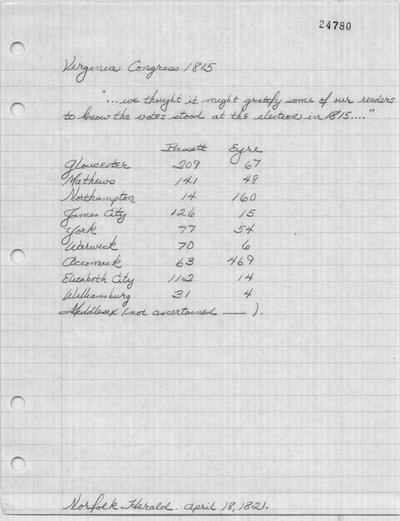 24780
Virginia Congress 1815
"...we thought it might gratify some of our readers
to know the votes stood at the election in 1815...."
Bassett Eyre
Gloucester 209 67
Mathews 141 48
Northampton 14 160
James City 126 15
York 77 54
Warwick 70 6
Accomack 63 469
Elizabeth City 112 14
Williamsburg 31 4
Middlesex (not ascertained — ).
Norfolk Herald. April 18, 1821.